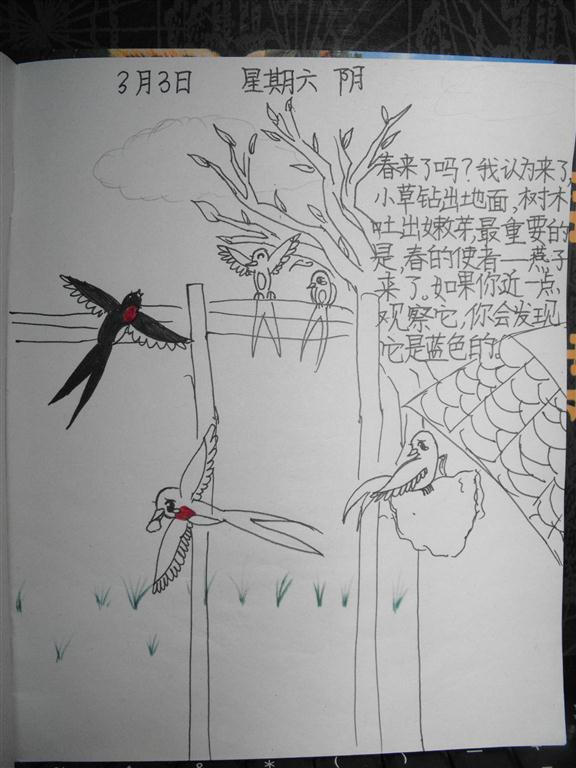 3月3日 星期六 阴
春来了吗？我认为来了，
小草钻出地面，树木
吐出嫩芽，最重要的
是，春的使者——燕子
来了。如果你近一点，
观察它，你会发现
它是蓝色的。